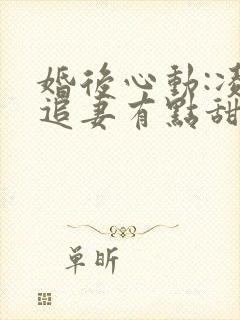 婚後心動:凌
追妻有點甜
單昕